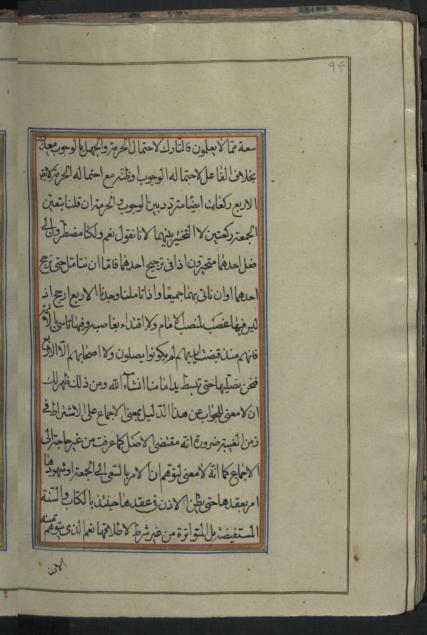 ۹۴
سعة مما لا يعلمون فالتارك لاحتمال الحرمة والجهل بالوجوب معذور
بخلاف الفاعل لاحتماله الوجوب وظنه مع احتماله الحرمة لا يقال
الاربع ركعات ايضا مترددة بين الوجوب والحرمة ان قلنا بتعين
الجمعة ركعتين لا التخيير بينهما لانا نقول نعم ولكنا مضطرون الى
فعل احدهما متحيرون اذا في ترجيح احدهما فاما ان نتامل حتى نرجح
احدهما او ان ناتي بهما جميعا واذا تاملنا وجدنا الاربع ارجح اذ
ليس فيها غصب لمنصب الامام ولا اقتداء بغاصب وفيها تاسي
فانهم منذ قبضت ايديهم لم يكونوا يصلون ولا اصحابهم الا الاربع
فنحن نصليها حتى تبسط يد امامنا انشاء الله ومن ذلك ظهر لك
ان لا معنى للجواب عن هذا الدليل بمعنى الاجماع على الاشتراط في
زمن الغيبة ضرورة انه مقتضى الاصل كما عرفت من غير حاجة الى
الاجماع كما انه لا معنى لتوهم ان الامر بالسعي الى الجمعة وشهودها
امر بعقدها حتى يظن الاذن في عقدها حينئذ بالكتاب والسنة
المستفيضة بل المتواترة من غير شرط لاطلاقها نعم الذي يتوهم منه
الاذن